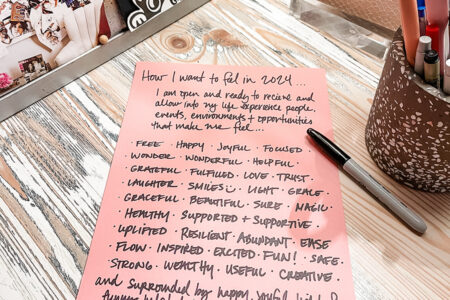 How I want to fel in 2024...
I am open and ready to recieve and
allow into my life experience people,
events, environments + opportunities
that make me feel...
· FREE · HAPPY · JOYFUL · FOCUSED ·
WONDER · WONDERFUL · HELPFUL ·
GRATEFUL · FULFILLED · LOVE · TRUST ·
LAUGHTER · SMILES☺ · LIGHT · GRACE ·
GRACEFUL · BEAUTIFUL · SURE · MAGIC ·
HEALTHY · SUPPORTED + SUPPORTIVE ·
UPLIFTED · RESILIENT · ABUNDANT · EASE
· FLOW · INSPIRED · EXCITED · FUN! · SAFE ·
STRONG · WEALTHY · USEFUL · CREATIVE
and surrounded by happy, joyful, kind